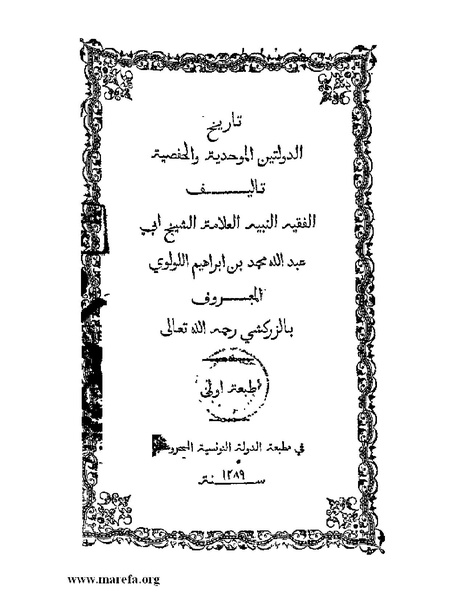 تاريخ
الدولتين الموحدية والحفصية
تاليف
الفقيه النبيه العلامة الشيخ ابي
عبد الله محمد بن ابراهيم اللولوي
المعروف
بالزركشي رحمه الله تعالى
طبعة اولى
في مطبعة الدولة التونسية المحروسة
سنة ١٢٨٩
www.marefa.org